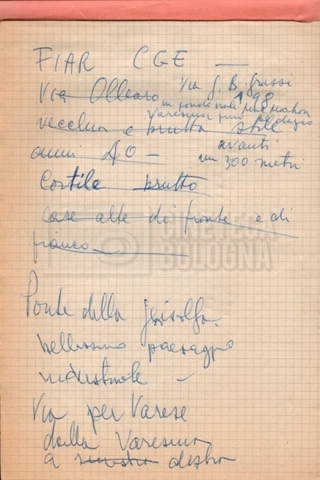 FIAR CGE —
Via Olleario Via G. B. Grassi
198
in fondo viale
Varesina fino
vecchia e brutta stile
avanti
anni 40 — un 300 metri
Cortile brutto
case alte di fronte e di
fianco
CINETECA
BOLOGNA
Ponte della Ghisolfa.
bellissimo paesaggio
industriale —
Via per Varese
dalla Varesina
a sinistra destra